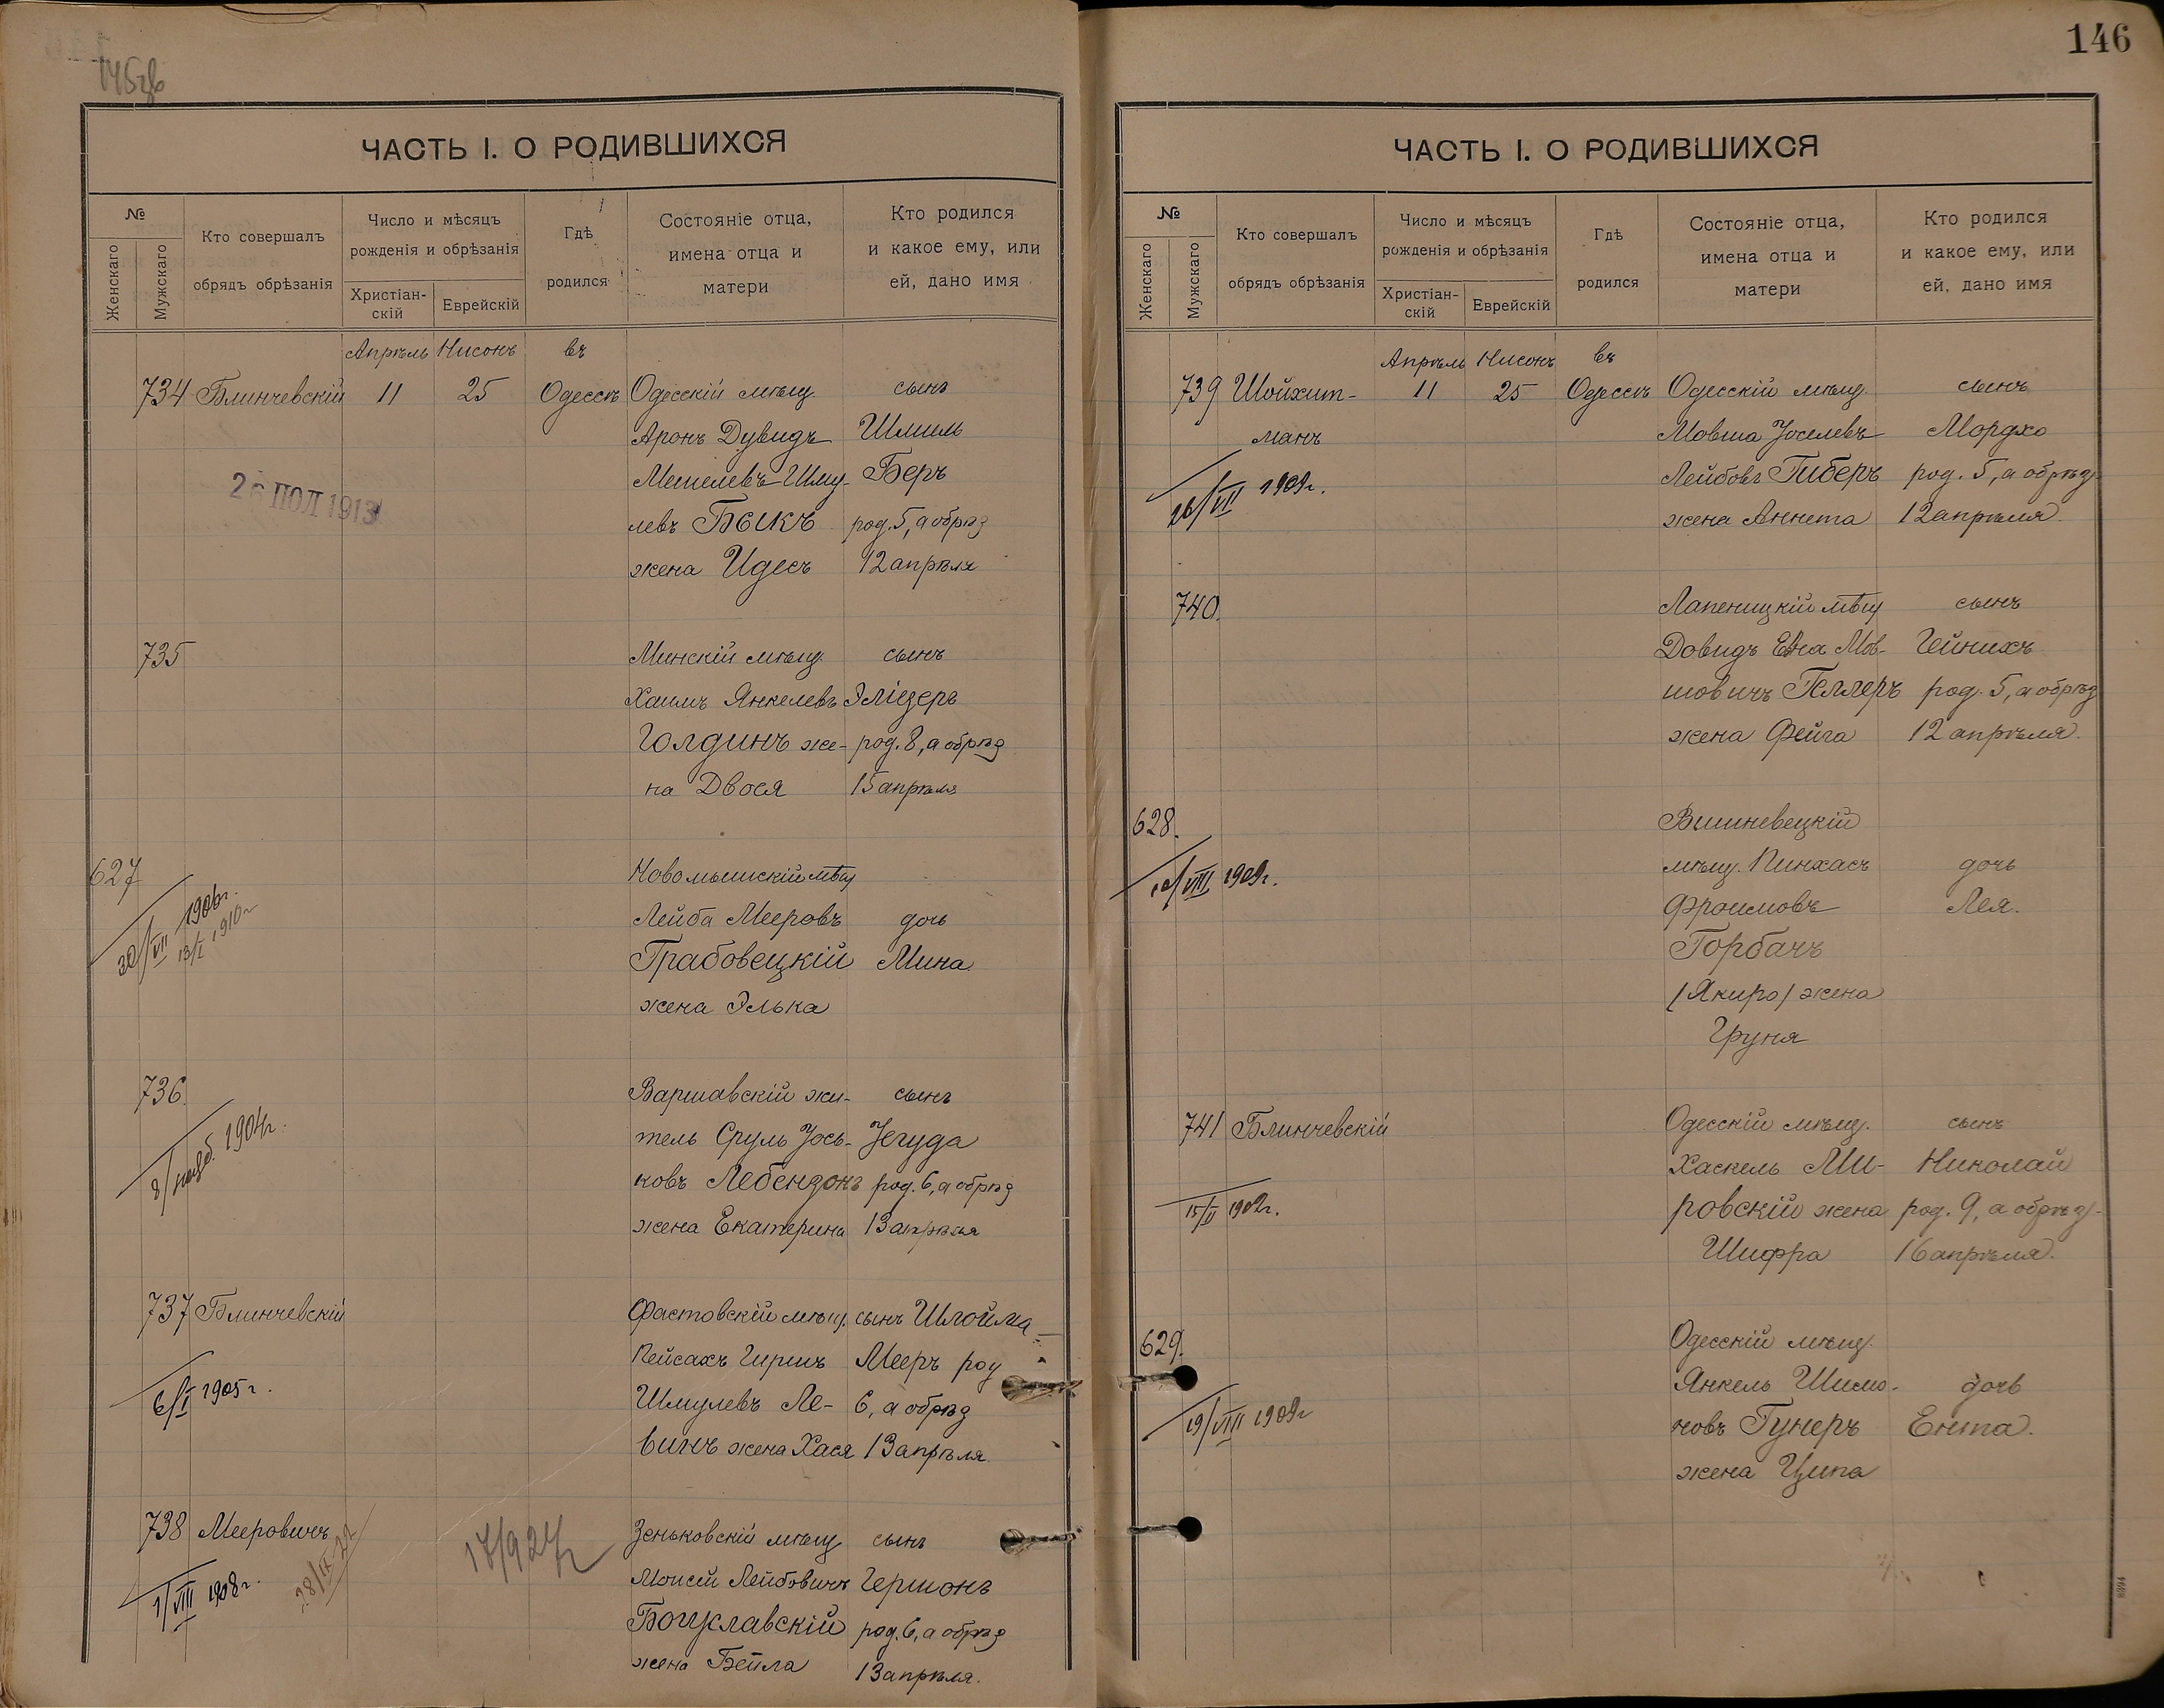 146
ЧАСТЬ I. О РОДИВШИХСЯ
№
Женскаго
Мужскаго
Кто совершалъ
обрядъ обрѣзанія
Число и мѣсяцъ
рожденія и обрѣзанія
Христіан-
скій
Еврейскій
Гдѣ
родился
Состояніе отца,
имена отца и
матери
Кто родился
и какое ему, или
ей, дано имя
Апрѣль Нисонъ въ
734 Блинчевскій 11 25 Одессѣ Одесскій мѣщ. сынъ
Аронъ Дувидъ Шмиль
Мешелевъ-Шму- Беръ
левъ Быкъ род. 5, а обрѣз
жена Идесъ 12 апрѣля
ПОЛ 1913
735 Минскій мѣщ. сынъ
Хаимъ Янкелевъ Эліезеръ
Голдинъ же- род. 8, а обрѣз
на Двося 15 апрѣля
627 Новомышскій мѣщ
Лейба Мееровъ дочь
Грабовецкій Мина
жена Элька
30/VII 1906г.
13/I 1910г
736 Варшавскій жи- сынъ
тель Сруль Іось- Іегуда
ковъ Лебензонъ род. 6, а обрѣз
жена Екатерина 13 апрѣля
1904г.
737 Блинчевскій Фастовскій мѣщ. сынъ Шлойма
Пейсахъ Гиршъ Мееръ род
Шмулевъ Ле- 6, а обрѣз
винъ жена Хася 13 апрѣля.
6/I 1905г.
738 Мееровичъ Зеньковскій мѣщ сынъ
Моисей Лейбовичъ Гершонъ
Богуславскій род. 6, а обрѣз
жена Бейла 13 апрѣля.
1/VIII 1908г.
ЧАСТЬ I. О РОДИВШИХСЯ
№
Женскаго
Мужскаго
Кто совершалъ
обрядъ обрѣзанія
Число и мѣсяцъ
рожденія и обрѣзанія
Христіан-
скій
Еврейскій
Гдѣ
родился
Состояніе отца,
имена отца и
матери
Кто родился
и какое ему, или
ей, дано имя
Апрѣль Нисонъ въ
739 Шойхит- 11 25 Одессѣ Одесскій мѣщ. сынъ
манъ Мовша Іоселевъ Мордхо
Лейбовъ Гиберъ род. 5, а обрѣз
жена Аннета 12 апрѣля
16/VII 1909г.
740. Лапеницкій мѣщ сынъ
Довидъ Мов- Гейнихъ
шовичъ Геллеръ род. 5, а обрѣз
жена Фейга 12 апрѣля.
628. Вишневецкій
мѣщ. Пинхасъ дочь
Фроимовъ Лея.
Горбачъ
/Якиро/ жена
Груня
10/VIII 1909г.
741 Блинчевскій Одесскій мѣщ. сынъ
Хаскель Ми- Николай
ровскій жена род. 9, а обрѣз-
Шифра 16 апрѣля.
629. Одесскій мѣщ.
Янкель Шимо- дочь
новъ Гунеръ Ента.
жена Ципа
19/VIII 1909г